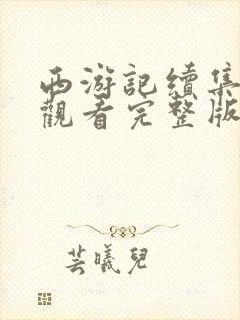 西游記續集
觀看完整版
芸曦兒